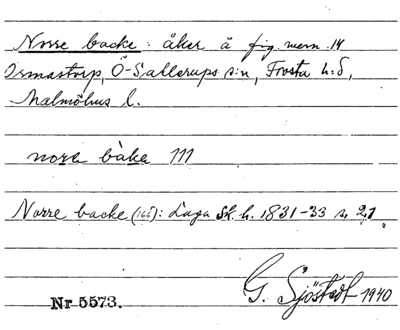 Norre backe: åker å fig. mem. 14
Ormastorp, Ö-Sallerups s:n, Frosta h:d,
Malmöhus l.
norre bake 111
Norre backe (166): Laga Sk. h. 1831-33 s. 21.
G. Sjöstedt 1940
Nr 5573.